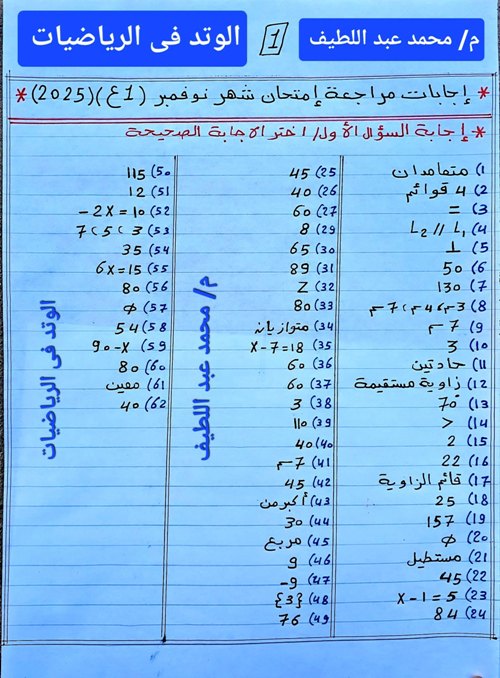 م/ محمد عبد اللطيف
1
الوتد فى الرياضيات
* إجابات مراجعة إمتحان شهر نوفمبر (1ع)(2025) *
* إجابة السؤال الأول/ اختر الاجابة الصحيحة
1) متعامدان
2) 4 قوائم
3) =
4) L₂ // L₁
5) ⊥
6) 50
7) 130
8) 3سم، 4سم، 7سم
9) 7سم
10) 3
11) حادتين
12) زاوية مستقيمة
13) 70°
14) >
15) 2
16) 22
17) قائم الزاوية
18) 25
19) 157
20) φ
21) مستطيل
22) 45
23) X-1=5
24) 84
25) 45
26) 40
27) 60
29) 8
30) 65
31) 89
32) Z
33) 80
34) متوازيان
35) X-7=18
36) 60
37) 60
38) 3
39) 110
40) 40
41) 7سم
42) 45
43) أكبر من
44) 30
45) مربع
46) 9
47) -9
48) {3}
49) 76
50) 115
51) 12
52) -2X=10
53) 3، 5، 7
54) 35
55) 6X=15
56) 80
57) φ
58) 54
59) 90-X
60) 80
61) معين
62) 40
م/ محمد عبد اللطيف
الوتد فى الرياضيات